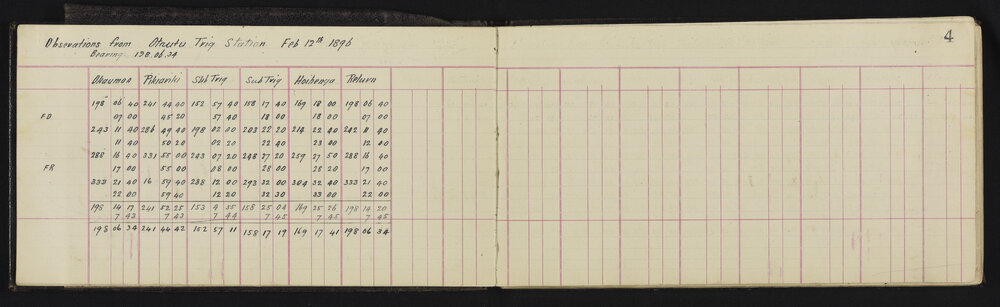 4
Observations from Otautu Trig Station Feb 12th 1896
Bearing 198.06.34
Okaumoa Pikiariki Sub Trig Sub Trig Hoihenga Return
198 06 40 241 44 40 152 57 40 158 17 40 169 18 00 198 06 40
FD 07 00 45 20 57 40 18 00 18 00 07 00
243 11 40 286 49 40 198 02 00 203 22 20 214 22 40 242 11 40
11 40 50 20 02 20 22 40 23 00 12 00
288 16 40 331 55 00 243 07 20 248 27 20 259 27 50 288 16 40
FR 17 00 55 00 08 00 28 00 28 20 17 00
333 21 40 16 59 40 288 12 00 293 32 00 304 32 40 333 21 40
22 00 59 40 12 20 32 30 33 00 22 00
198 14 17 241 52 25 153 4 55 158 25 04 169 25 26 198 14 20
7 43 7 43 7 44 7 45 7 45 7 45
198 06 34 241 44 42 152 57 11 158 17 19 169 17 41 198 06 34